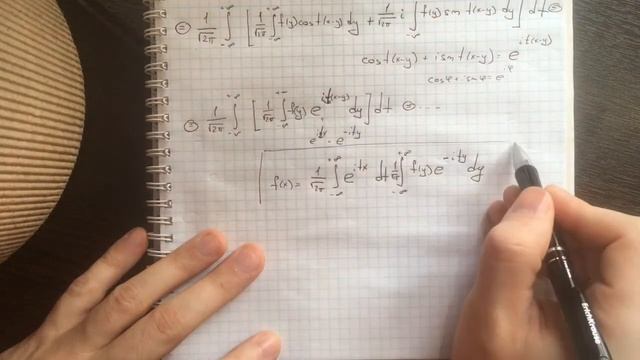 = 1/√2π ∫_{-∞}^{+∞} [ 1/√2π ∫_{-∞}^{+∞} f(y) cos t(x-y) dy + 1/√2π i ∫_{-∞}^{+∞} f(y) sin t(x-y) dy ] dt =
cos t(x-y) + i sin t(x-y) = e^{it(x-y)}
cos φ + i sin φ = e^{iφ}
= 1/√2π ∫_{-∞}^{+∞} [ 1/√2π ∫_{-∞}^{+∞} f(y) e^{it(x-y)} dy ] dt = ...
e^{itx} · e^{-ity}
f(x) = 1/√2π ∫_{-∞}^{+∞} e^{itx} dt 1/√2π ∫_{-∞}^{+∞} f(y) e^{-ity} dy
ErichKrause